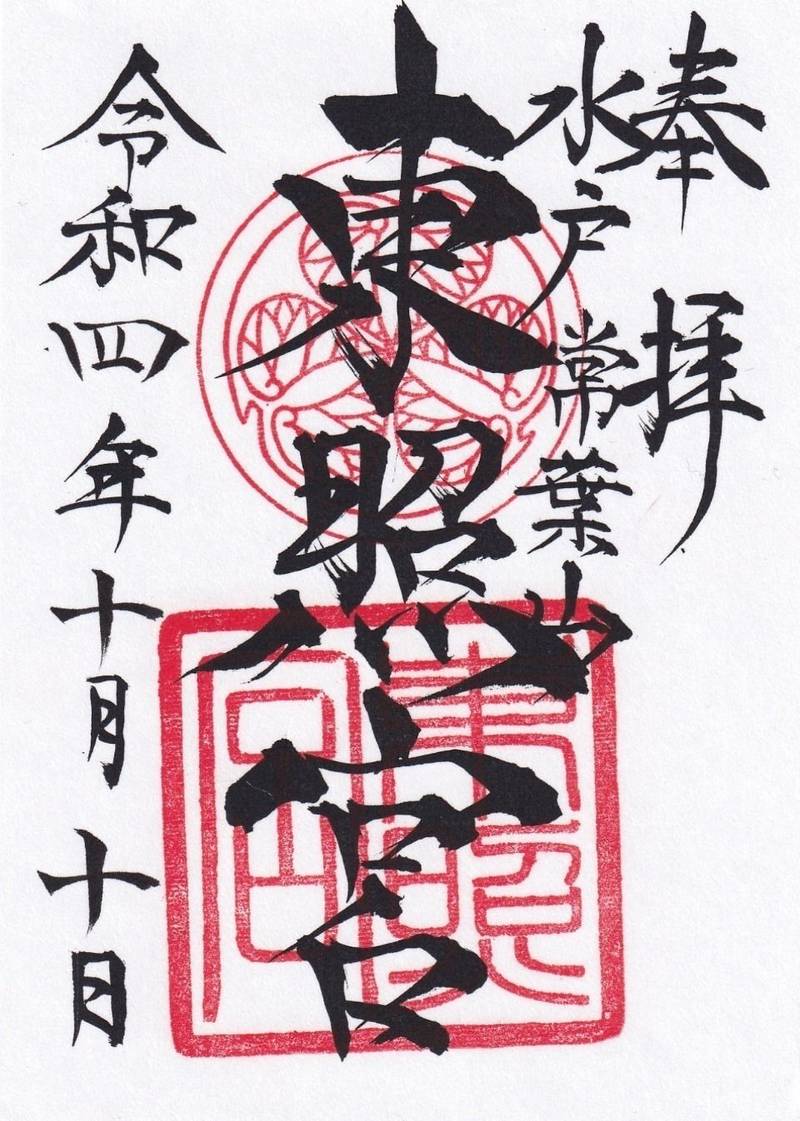 奉拝
水戸 常葉山
東照宮
東照宮
令和四年十月十日